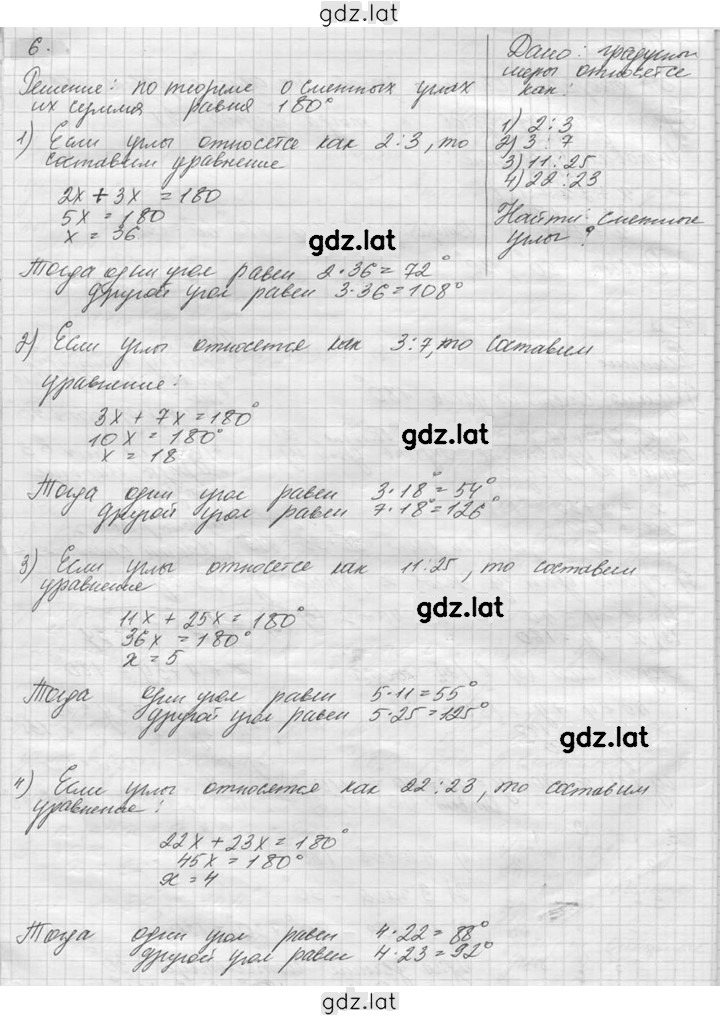 gdz.lat
6.
Дано: градусны
меры относятся
как:
1) 2:3
2) 3:7
3) 11:25
4) 22:23
Найти: смежные
углы?
Решение: по теореме о смежных углах
их сумма равна 180°
1) Если углы относятся как 2:3, то
составим уравнение
2x + 3x = 180
5x = 180
x = 36
gdz.lat
Тогда один угол равен 2·36 = 72°
другой угол равен 3·36 = 108°
2) Если углы относятся как 3:7, то составим
уравнение:
3x + 7x = 180°
10x = 180°
x = 18
gdz.lat
Тогда один угол равен 3·18° = 54°
другой угол равен 7·18° = 126°
3) Если углы относятся как 11:25, то составим
уравнение
11x + 25x = 180°
36x = 180°
x = 5
gdz.lat
Тогда один угол равен 5·11 = 55°
другой угол равен 5·25 = 125°
gdz.lat
4) Если углы относятся как 22:23, то составим
уравнение:
22x + 23x = 180°
45x = 180°
x = 4
Тогда один угол равен 4·22 = 88°
другой угол равен 4·23 = 92°
gdz.lat